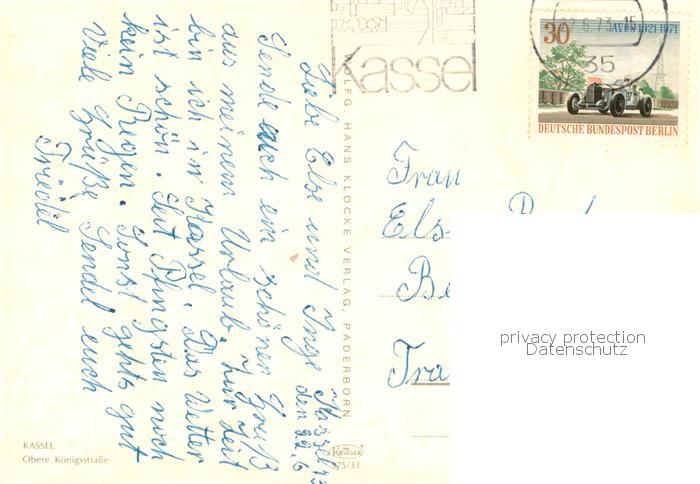 Kassel 73
den 22.6
Liebe Else und Inge
Sende euch ein schönen Gruß
aus meinem Urlaub. Zur Zeit
bin ich in Kassel. Das Wetter
ist schön. Seit Pfingsten noch
kein Regen. Sonst gehts gut
Viele Grüße Sendet euch
Friedel
KASSEL
Obere Königsstraße
WOLFG. HANS KLOCKE VERLAG, PADERBORN
KRÜGER
975/33
Kassel
22.6.73-15
35
30 AVUS 1921-1971
DEUTSCHE BUNDESPOST BERLIN
Frau
Els
Be
Tra
privacy protection
Datenschutz